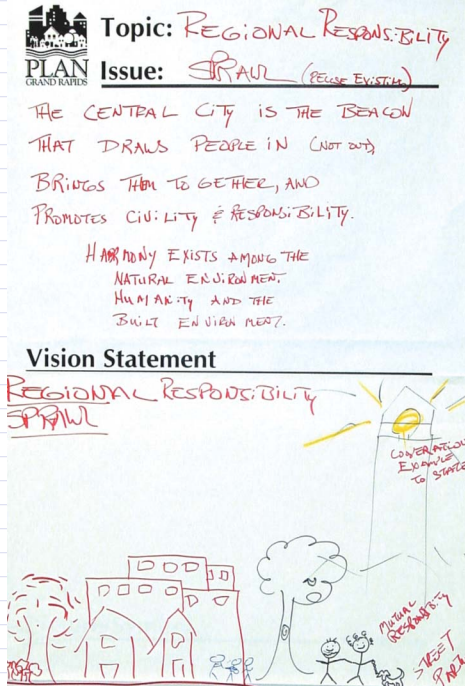 PLAN
GRAND RAPIDS
Topic: REGIONAL RESPONSIBILITY
Issue: SPRAWL (REUSE EXISTING)
THE CENTRAL CITY IS THE BEACON
THAT DRAWS PEOPLE IN (NOT OUT),
BRINGS THEM TOGETHER, AND
PROMOTES CIVILITY & RESPONSIBILITY.
HARMONY EXISTS AMONG THE
NATURAL ENVIRONMENT,
HUMANITY AND THE
BUILT ENVIRONMENT.
Vision Statement
REGIONAL RESPONSIBILITY
SPRAWL
EXAMPLE
TO STATE
MUTUAL
RESPONSIBILITY